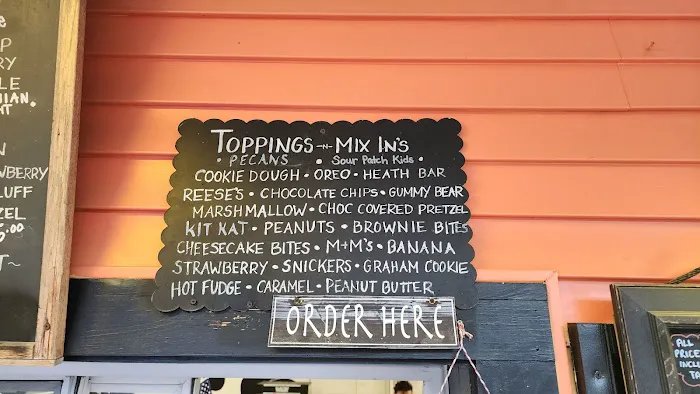 TOPPINGS -N- MIX IN'S
• PECANS • SOUR PATCH KIDS •
COOKIE DOUGH • OREO • HEATH BAR
REESE'S • CHOCOLATE CHIPS • GUMMY BEAR
MARSHMALLOW • CHOC COVERED PRETZEL
KIT KAT • PEANUTS • BROWNIE BITES
CHEESECAKE BITES • M+M'S • BANANA
STRAWBERRY • SNICKERS • GRAHAM COOKIE
HOT FUDGE • CARAMEL • PEANUT BUTTER
ORDER HERE
ALL